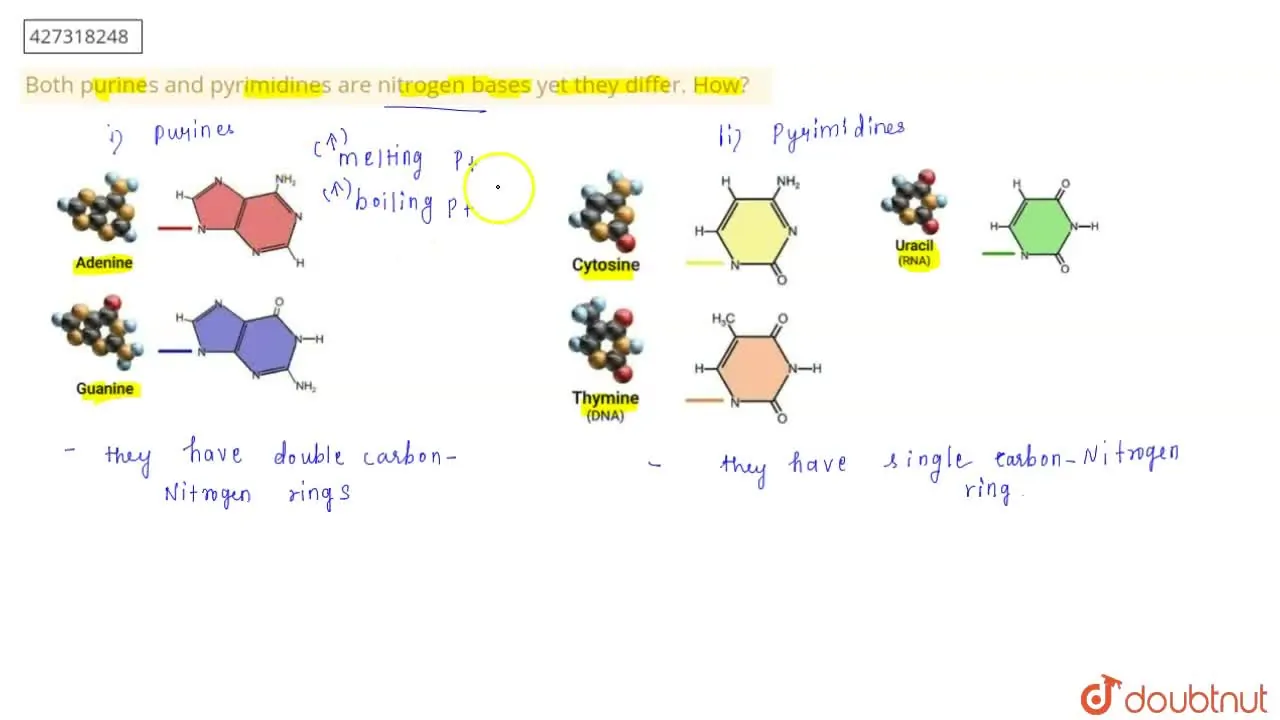 427318248
Both purines and pyrimidines are nitrogen bases yet they differ. How?
i) Purines
(↑) melting Pt
(↑) boiling Pt
ii) Pyrimidines
Adenine
H
N
NH₂
N
N
N
H
Guanine
H
N
O
N
N-H
N
NH₂
Cytosine
H
NH₂
H
N
N
O
Uracil
(RNA)
H
O
H
N-H
N
O
Thymine
(DNA)
H₃C
O
H
N-H
N
O
- they have double carbon-
Nitrogen rings
- they have single carbon-Nitrogen
ring.
doubtnut